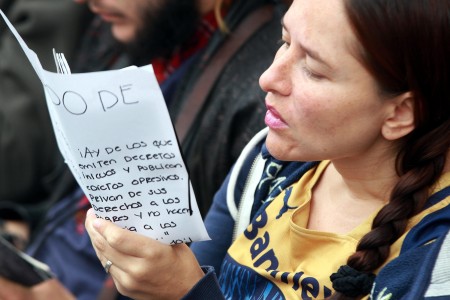 DO DE
¡AY DE LOS QUE
EMITEN DECRETOS
INICUOS Y PUBLICAN
EDICTOS OPRESIVOS.
PRIVAN DE SUS
DERECHOS A LOS
Y NO HACEN
A LOS